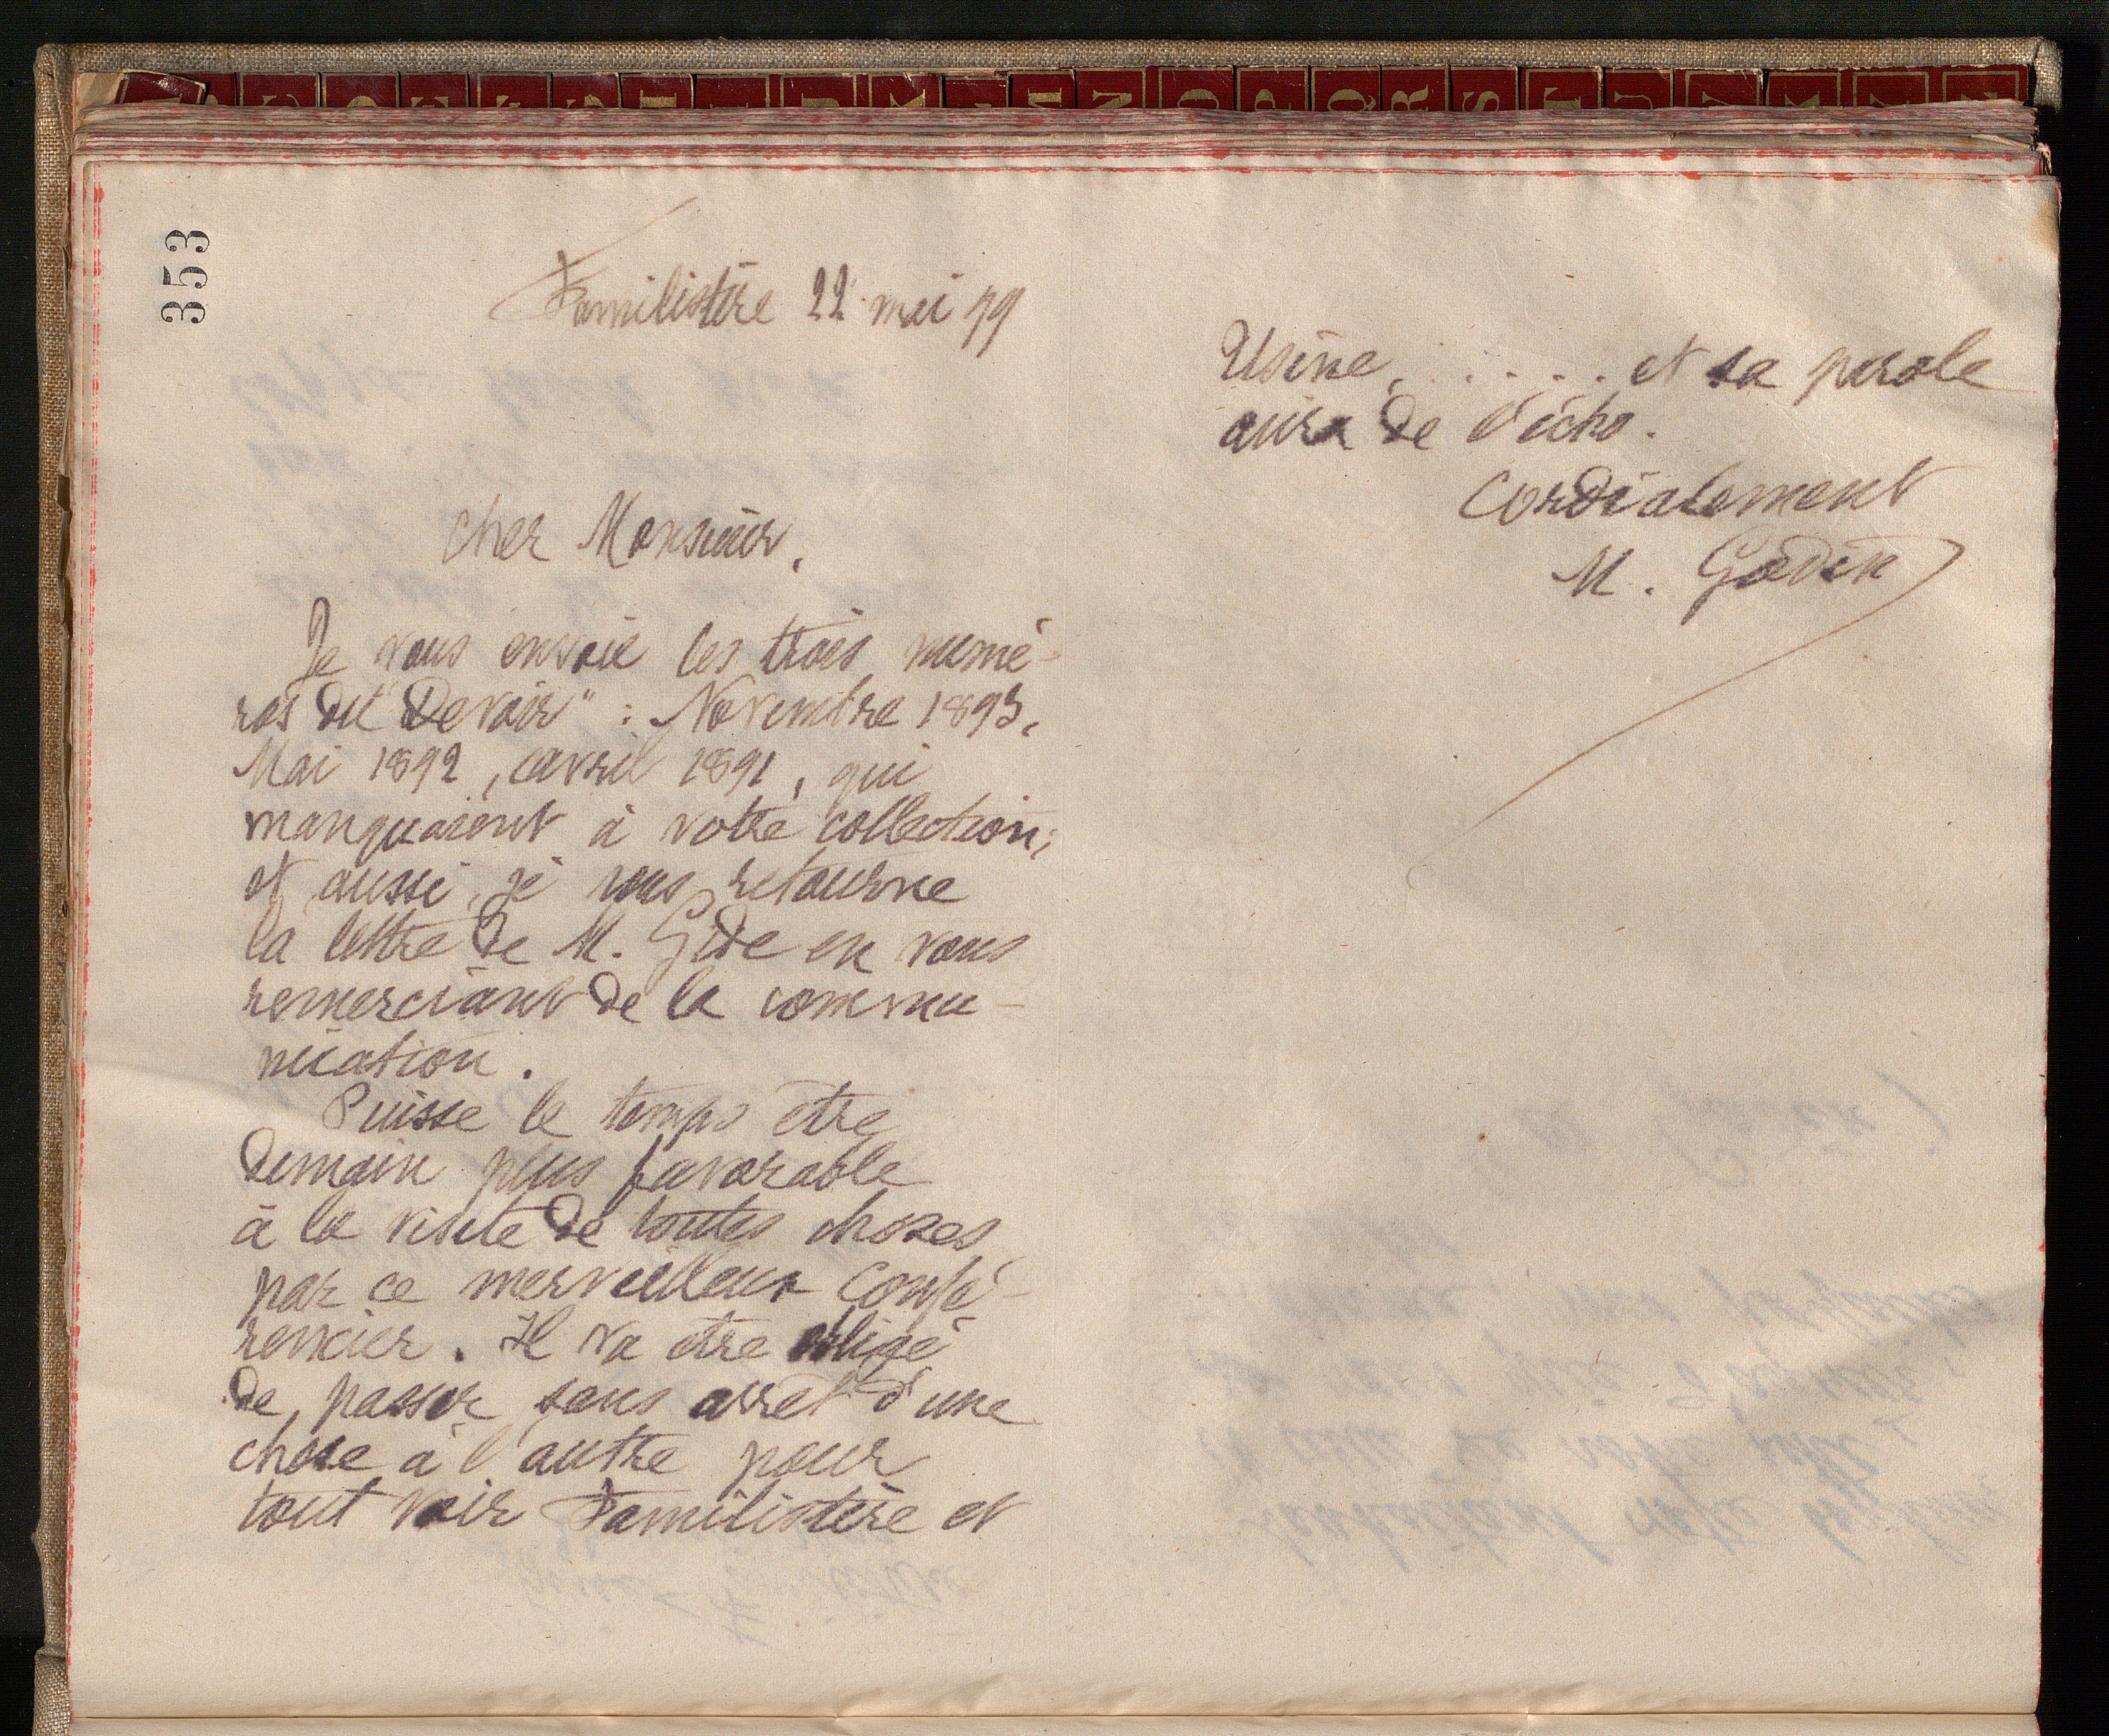 353
Familistère 22 mai 99
Cher Monsieur,
Je vous envoie les trois numé-
ros du "Devoir" : Novembre 1893,
Mai 1892, avril 1891, qui
manquaient à votre collection;
et aussi, je vous retourne
la lettre de M. Gide en vous
remerciant de la commu-
nication.
Puisse le temps être
demain plus favorable
à la visite de toutes choses
par ce merveilleux confé-
rencier. Il va être obligé
de passer sans arrêt d'une
chose à l'autre pour
tout voir Familistère et
Usine, . . . . . et sa parole
aura de l'écho.
Cordialement
M. Godin